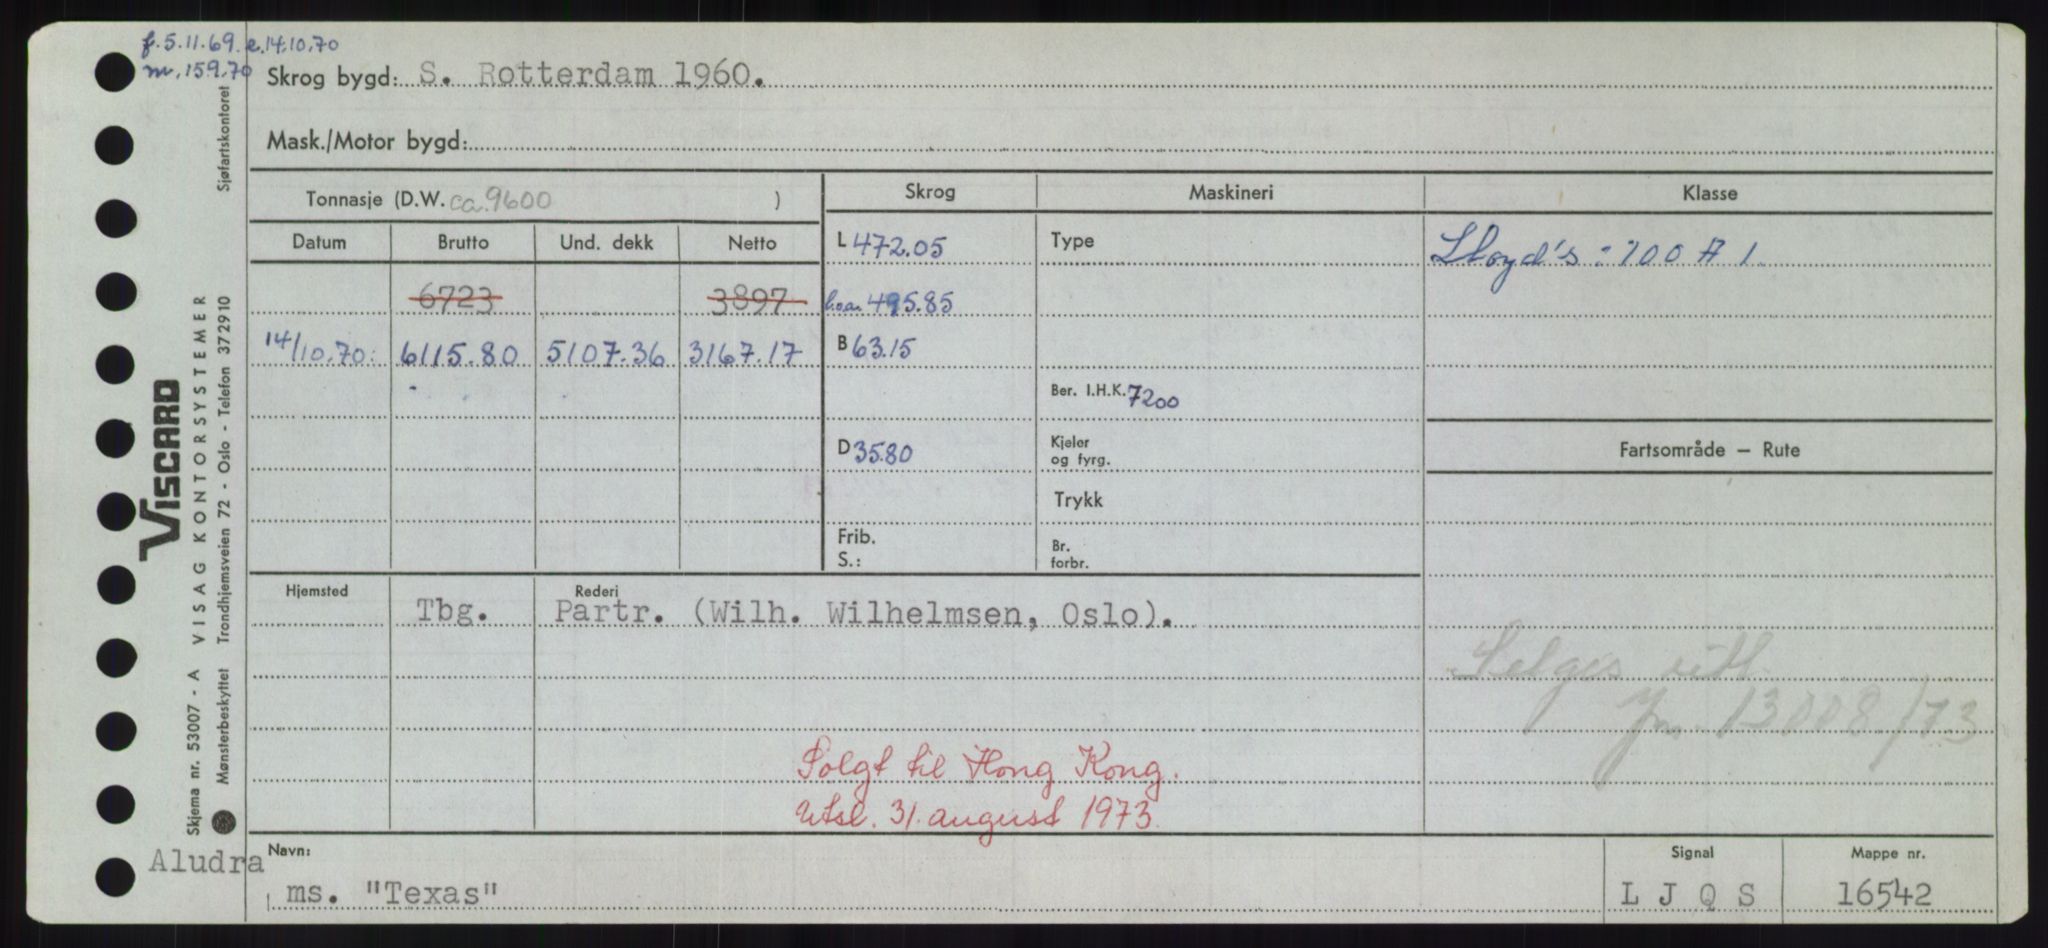 f. 5.11.69. e.14.10.70
m. 159.70
Skrog bygd: S. Rotterdam 1960.
Mask./Motor bygd:
Tonnasje (D.W. ca. 9600 )
Skrog
Maskineri
Klasse
Datum
Brutto
Und. dekk
Netto
L 472.05
Type
Lloyd's : 100 A 1.
6723
3897
495.85
14/10.70. 6115.80 5107.36 3167.17
B 63.15
Ber. I.H.K. 7200
D 35.80
Kjeler
og fyrg.
Fartsområde – Rute
Trykk
Frib.
S.:
Br.
forbr.
Hjemsted
Rederi
Tbg.
Partr. (Wilh. Wilhelmsen, Oslo).
Selges
Jnr. 13008/73
Solgt til Hong Kong.
Utsl. 31. august 1973.
Aludra
Navn:
ms. "Texas"
Signal
L J Q S
Mappe nr.
16542
VISCARD
VISAG KONTORSYSTEMER
Skjema nr. 53007 - A
Mønsterbeskyttet
Trondhjemsveien 72 - Oslo - Telefon 372910
Sjøfartskontoret